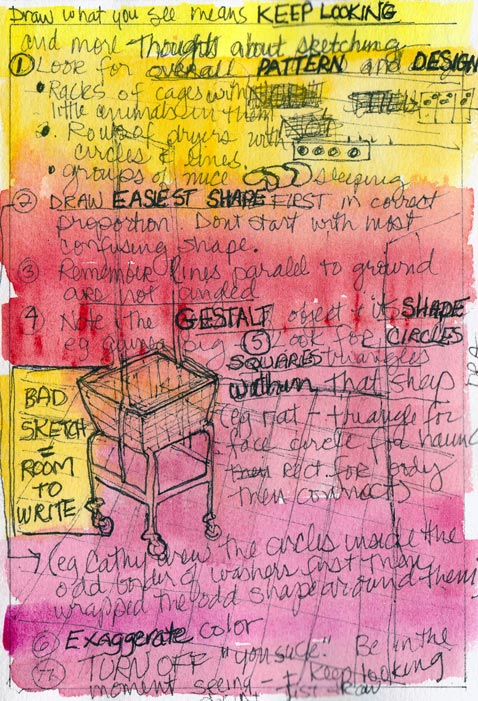 Draw what you see means KEEP LOOKING
and more Thoughts about sketching
① Look for overall PATTERN and DESIGN
• Racks of cages with
little animals in them
• Rows of dryers with
circles & lines.
• groups of mice sleeping
② DRAW EASIEST SHAPE FIRST in correct
proportion Dont start with most
confusing shape.
③ Remember lines parallel to ground
are not angled
4) Note the GESTALT object + its SHAPE
eg guinea pig ⑤ Look for CIRCLES
SQUARES triangles
within That shap
(eg rat - triangle for
face circle for haunch
then rect for body
then connect)
BAD
SKETCH
=
ROOM
TO
WRITE
→ (eg Cathy drew the circles inside the
odd border of washers first then
wrapped the odd shape around them)
⑥ Exaggerate color
⑦ TURN OFF "you suck." Be in the
moment seeing - keep looking
Just draw